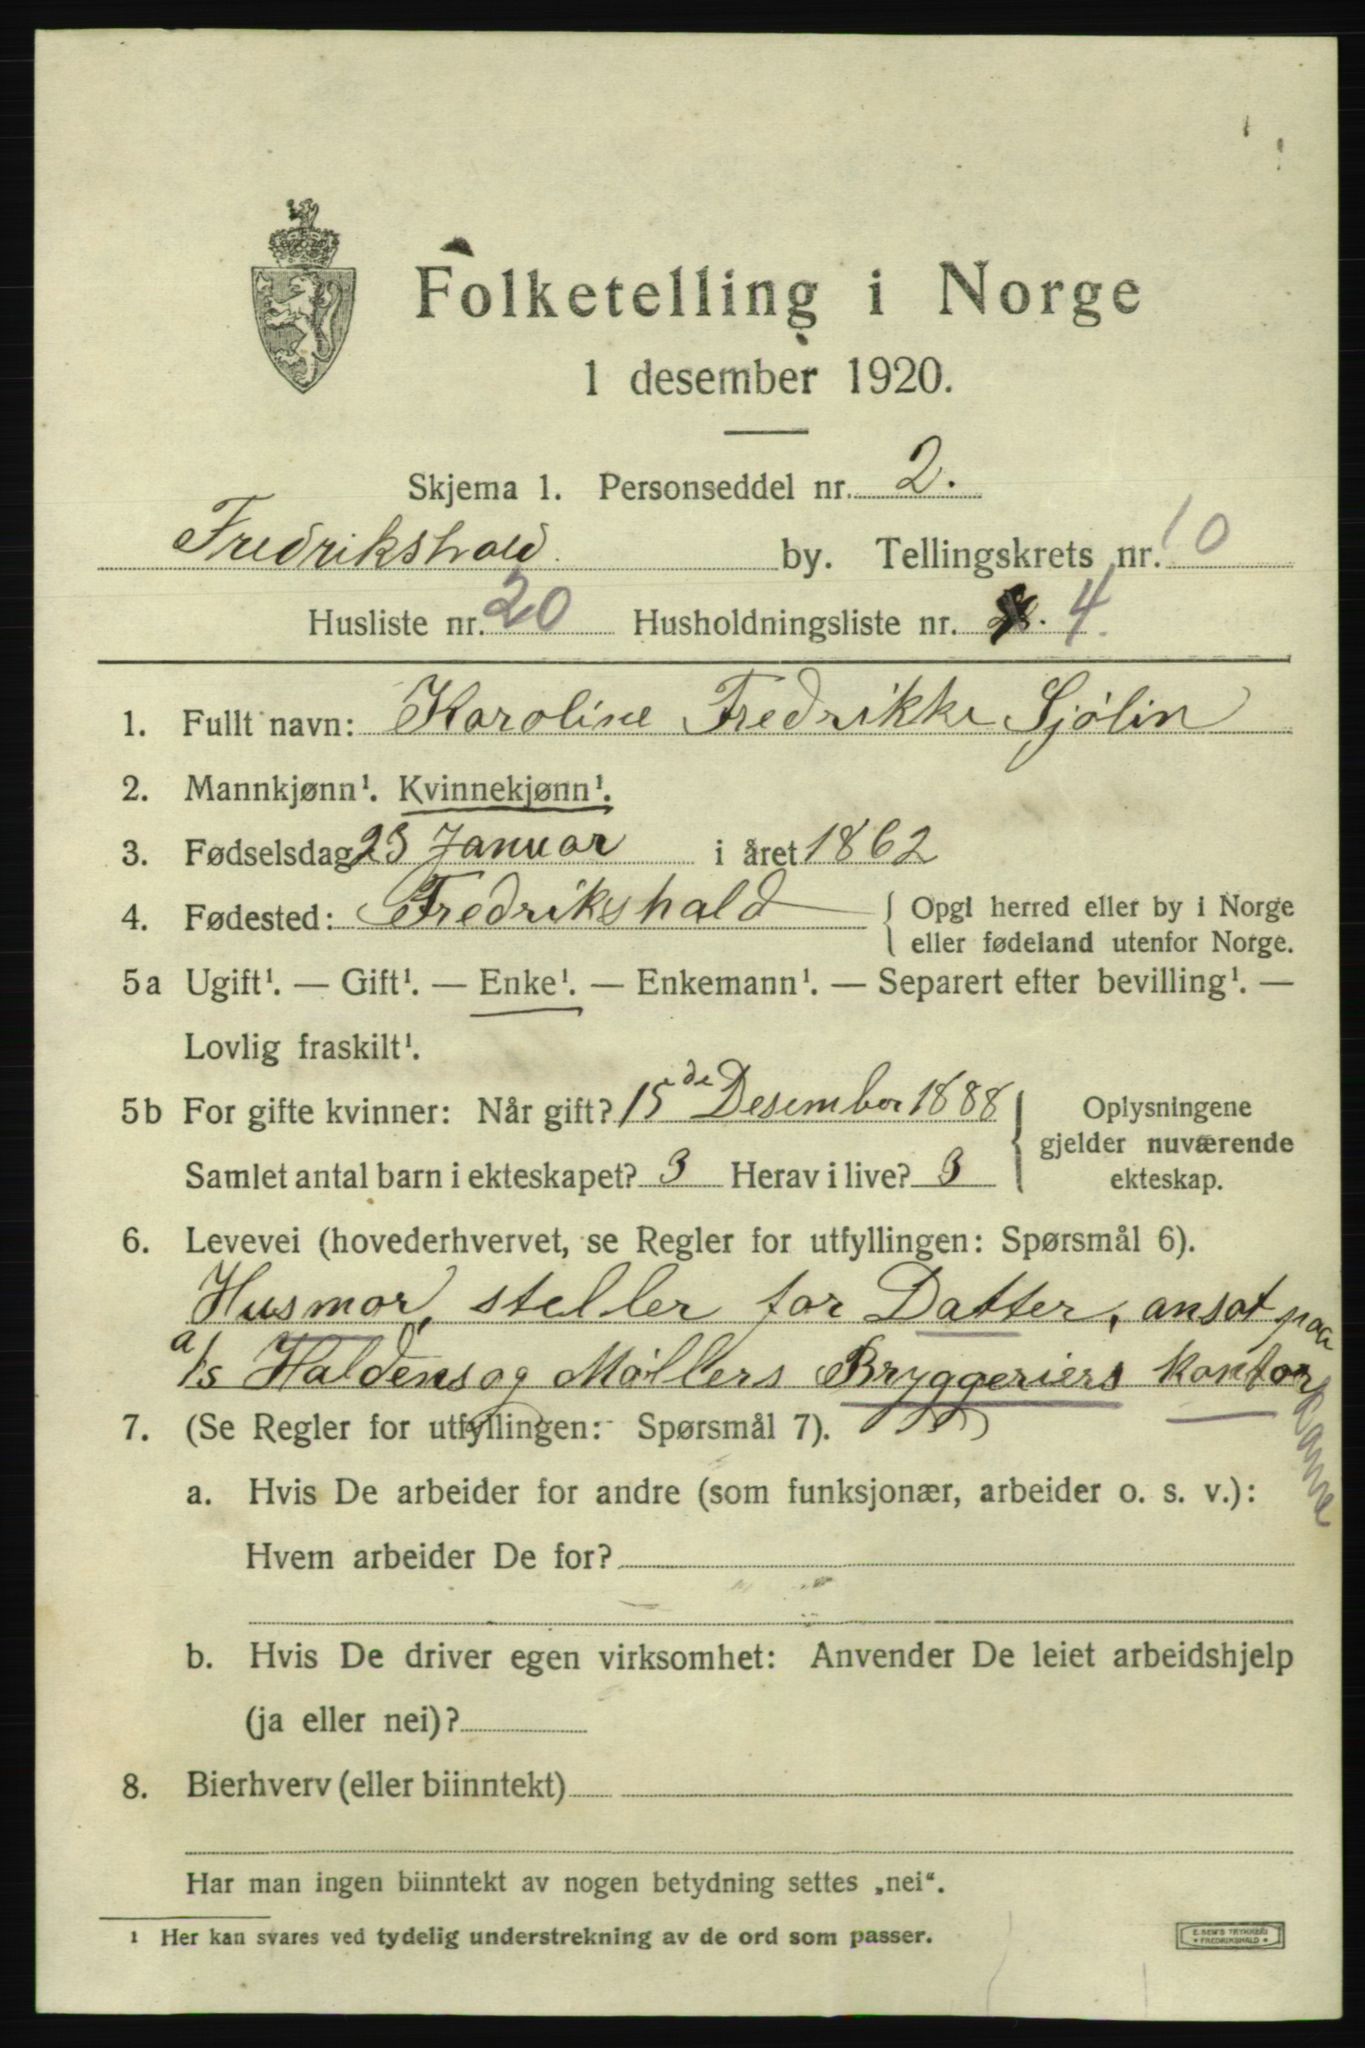 Folketelling i Norge
1 desember 1920.
Skjema 1. Personseddel nr. 2.
Fredrikshald. by. Tellingskrets nr. 10
Husliste nr. 20 Husholdningsliste nr. 4.
1. Fullt navn: Karoline Fredrikke Sjölin
2. Mannkjønn¹. Kvinnekjønn¹.
3. Fødselsdag 23 Januar i året 1862
4. Fødested: Fredrikshald { Opgi herred eller by i Norge
eller fødeland utenfor Norge.
5a Ugift¹. — Gift¹. — Enke¹. — Enkemann¹. — Separert efter bevilling¹. —
Lovlig fraskilt¹.
5b For gifte kvinner: Når gift? 15de Desember 1888 } Oplysningene
gjelder nuværende
Samlet antal barn i ekteskapet? 3 Herav i live? 3 ekteskap.
6. Levevei (hovederhvervet, se Regler for utfyllingen: Spørsmål 6).
Husmor, steller for Datter, ansat paa
a/s Haldens og Møllers Bryggeriers kontor
7. (Se Regler for utfyllingen: Spørsmål 7).
a. Hvis De arbeider for andre (som funksjonær, arbeider o. s. v.):
Hvem arbeider De for?
b. Hvis De driver egen virksomhet: Anvender De leiet arbeidshjelp
(ja eller nei)?
8. Bierhverv (eller biinntekt)
Har man ingen biinntekt av nogen betydning settes „nei“.
¹ Her kan svares ved tydelig understrekning av de ord som passer.
E. SEM'S TRYKKERI
• FREDRIKSHALD •